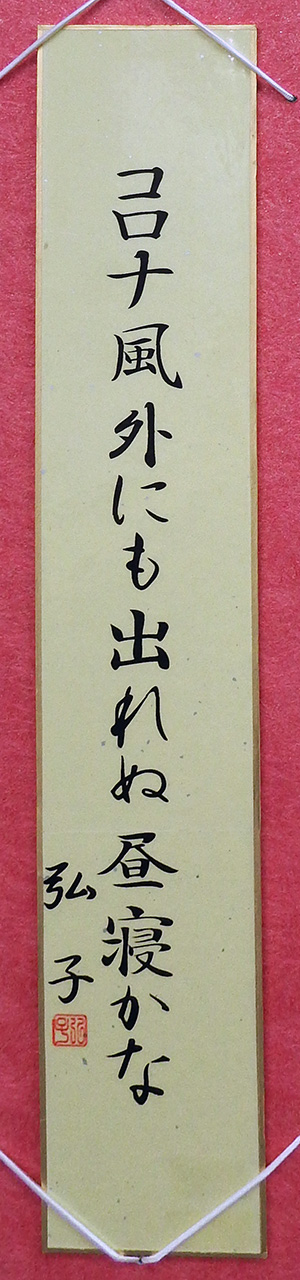 コロナ風外にも出れぬ昼寝かな
弘子
弘子